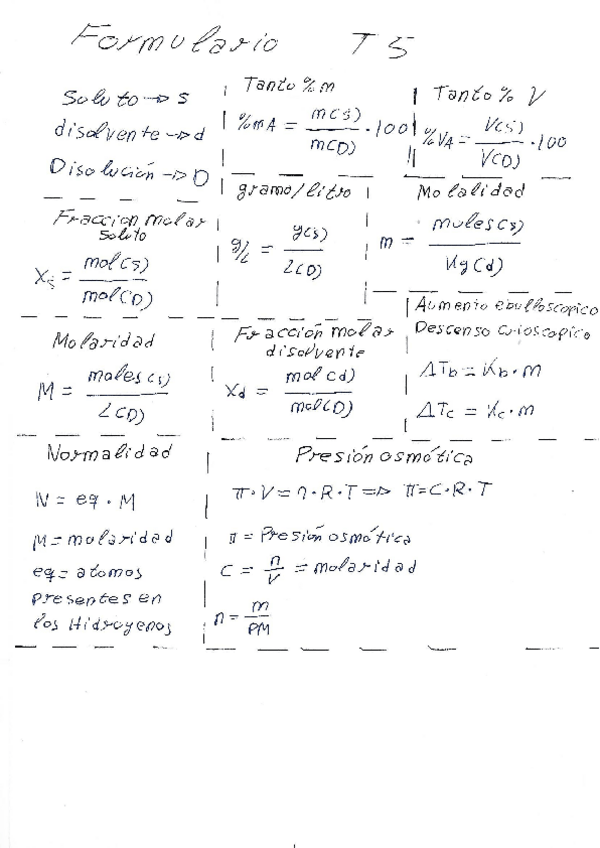 Formulario T5
Soluto → s
disolvente → d
Disolución → D
Tanto % m
%mA = m(s) / m(D) · 100
Tanto % V
%VA = V(s) / V(D) · 100
Fraccion molar
soluto
Xs = mol(s) / mol(D)
gramo/litro
g/L = g(s) / L(D)
Molalidad
m = moles(s) / Kg(d)
Molaridad
M = moles(s) / L(D)
Fracción molar
disolvente
Xd = mol(d) / mol(D)
Aumento ebulloscopico
Descenso crioscopico
ΔTb = Kb · m
ΔTc = Kc · m
Normalidad
N = eq · M
M = molaridad
eq = atomos
presentes en
los Hidrogenos
Presión osmótica
π · V = n · R · T => π = C · R · T
π = Presión osmótica
C = n / V = molaridad
n = m / PM